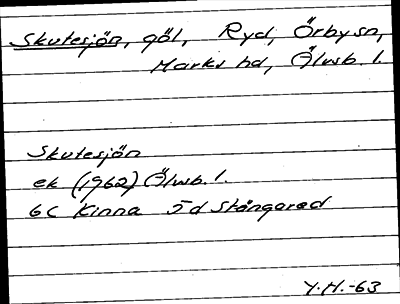 Skutesjön, göl, Ryd, Örby sn,
Marks hd, Älvsb. l.
Skutesjön
ek (1962) Älvsb. l.
6C Kinna 5d Stångared
Y.H.-63